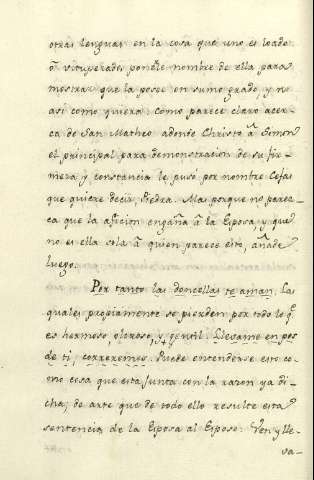 otras lenguas en la cosa que uno es loado
ó vituperado, ponelle nombre de ella para
mostrar que la posee en sumo grado, y no
asi como quiera: como parece claro acer-
ca de San Matheo adonde Christo â Simon
el principal para demonstracion de su fir-
meza y constancia le puso por nombre Cefas
que quiere decir, Piedra. Mas porque no parez-
ca que la aficion engaña â la Esposa, y que
no es ella sola â quien parece esto, añade
luego.
Por tanto las doncellas te aman. Las
quales propiamente se pierden por todo lo q.e
es hermoso, oloroso, y gentil. Llevame en pos
de ti, correremos. Puede entenderse esto co-
mo cosa que esta junta con la razon ya di-
cha; de arte que de todo ello resulte esta
sentencia de la Esposa al Esposo: Ven y lle-
va-